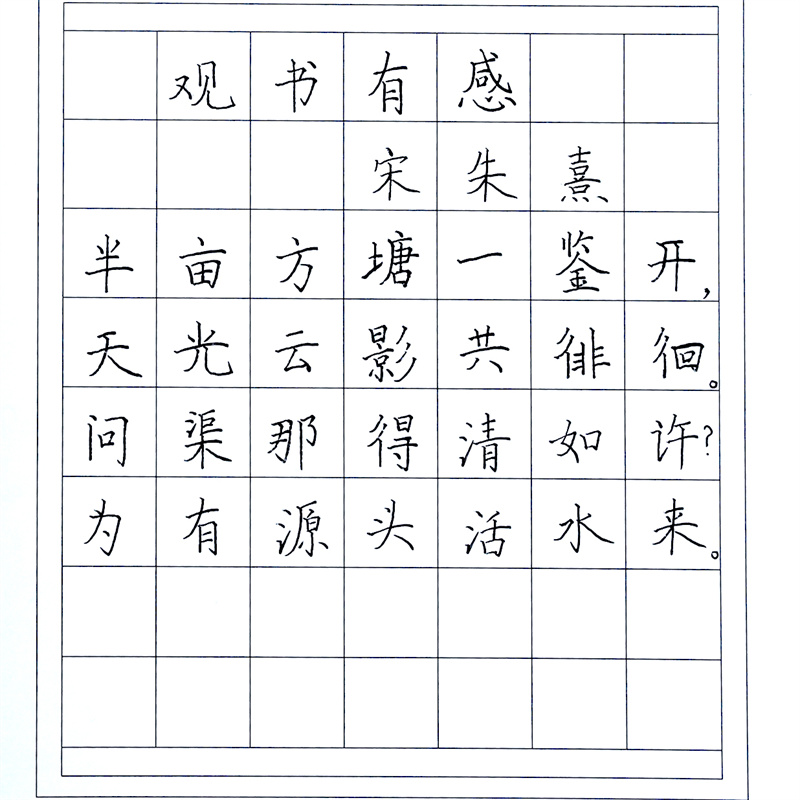 观书有感
宋朱熹
半亩方塘一鉴开，
天光云影共徘徊。
问渠那得清如许？
为有源头活水来。